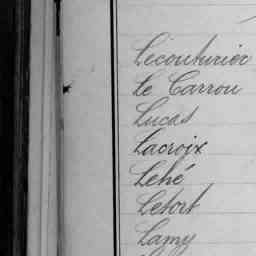 Lecouturier
Le Carrou
Lucas
Lacroix
Lehé
Letort
Lamy